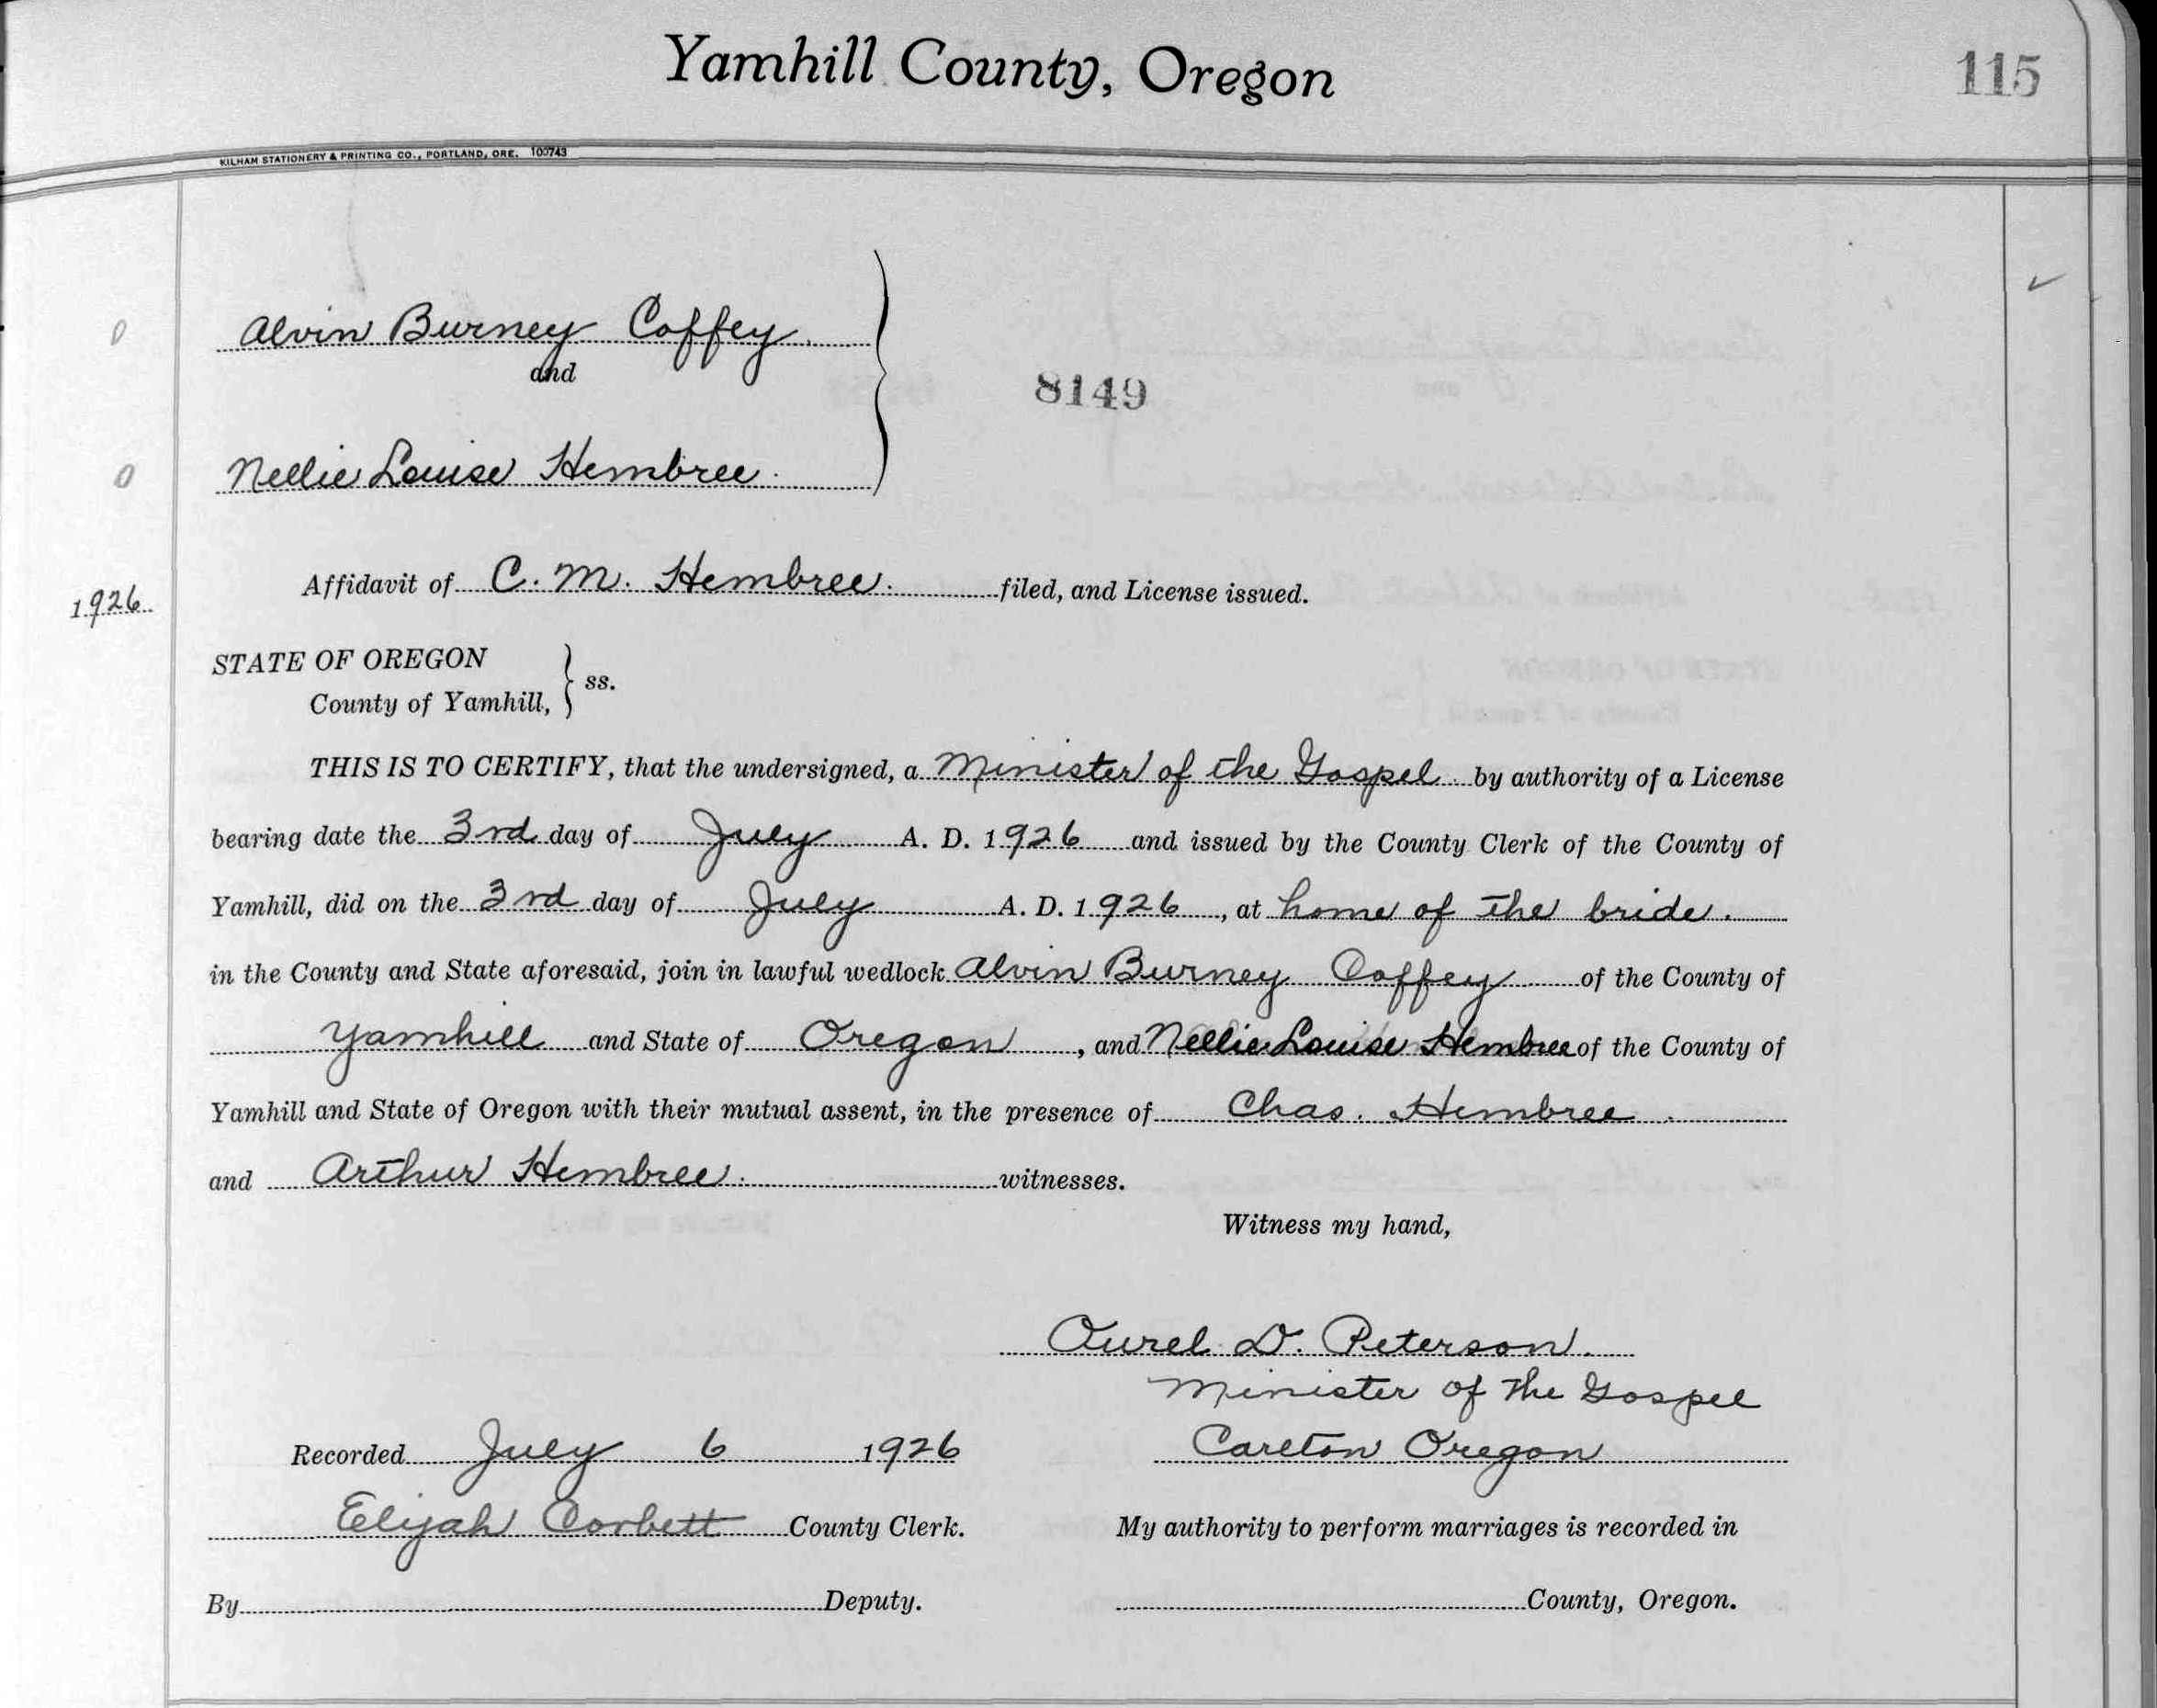 Yamhill County, Oregon
115
KILHAM STATIONERY & PRINTING CO., PORTLAND, ORE. 100743
Alvin Burney Coffey
and
8149
Nellie Louise Hembree.
1926
Affidavit of C. M. Hembree. filed, and License issued.
STATE OF OREGON
County of Yamhill, } ss.
THIS IS TO CERTIFY, that the undersigned, a Minister of the Gospel by authority of a License
bearing date the 3rd day of July A. D. 1926 and issued by the County Clerk of the County of
Yamhill, did on the 3rd day of July A. D. 1926, at home of the bride.
in the County and State aforesaid, join in lawful wedlock Alvin Burney Coffey of the County of
Yamhill and State of Oregon, and Nellie Louise Hembree of the County of
Yamhill and State of Oregon with their mutual assent, in the presence of Chas. Hembree.
and Arthur Hembree. witnesses.
Witness my hand,
Aurel D. Peterson.
Minister of the Gospel
Recorded July 6 1926
Carlton Oregon
Elijah Corbett County Clerk.
My authority to perform marriages is recorded in
By Deputy.
County, Oregon.